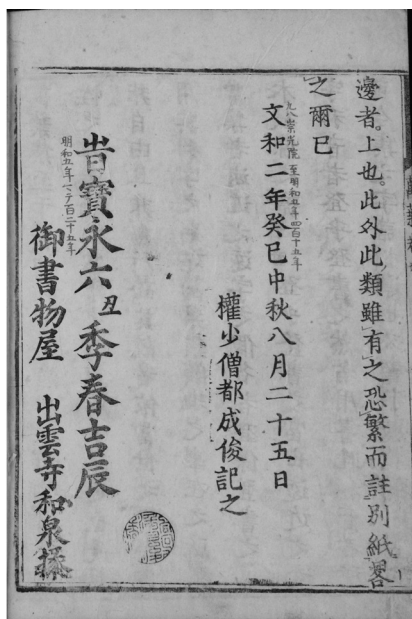 邊者上也此外此類雖有之恐繁而註別紙畧
之爾已
九八崇光院 至明和五年四百十五年
文和二年癸巳中秋八月二十五日
權少僧都成俊記之
旹寶永六丑季春吉辰
明和五年
御書物屋 出雲寺和泉掾